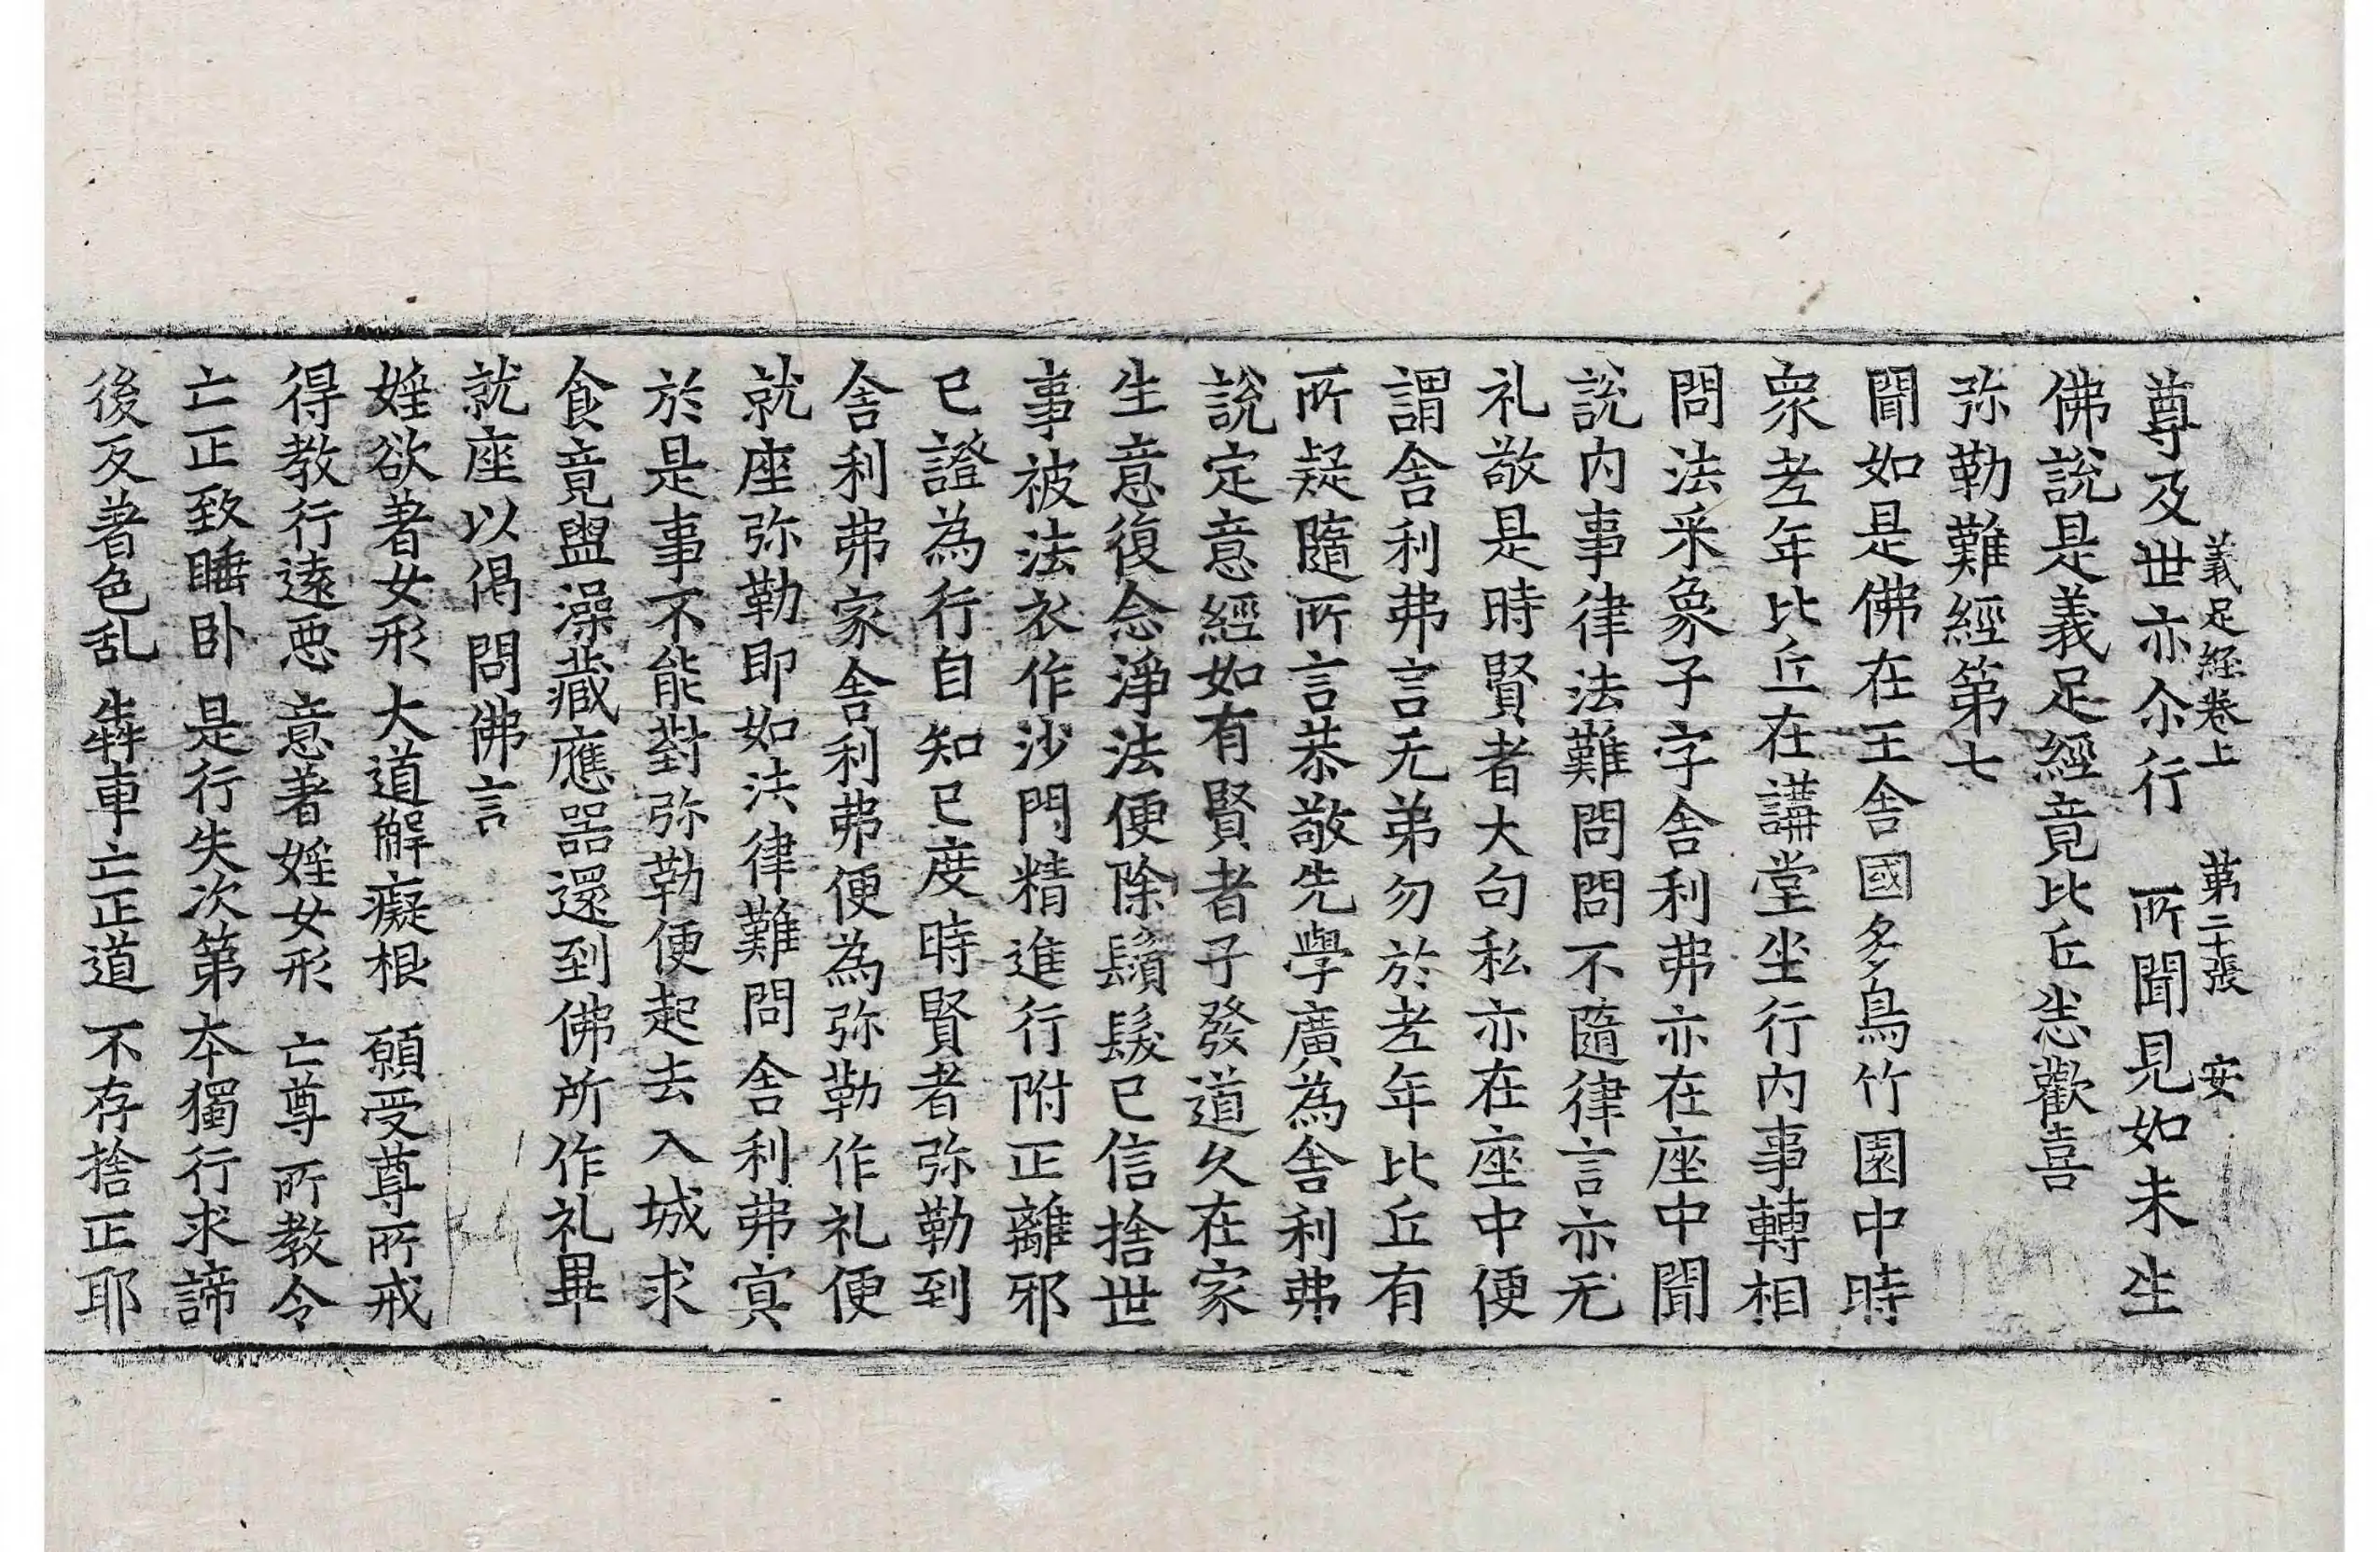 義足經卷上　第二十張　安
尊及世亦尒行　所聞見如未生
佛說是義足經竟比丘悉歡喜
弥勒難經第七
聞如是佛在王舍國多鳥竹園中時
衆老年比丘在講堂坐行内事轉相
問法采象子字舍利弗亦在座中聞
說内事律法難問問不隨律言亦无
礼敬是時賢者大句私亦在座中便
謂舍利弗言无弟勿於老年比丘有
所疑隨所言恭敬先學廣為舍利弗
說定意經如有賢者子發道久在家
生意復念淨法便除鬚髮已信捨世
事被法衣作沙門精進行附正離邪
已證為行自知已度時賢者弥勒到
舍利弗家舍利弗便為弥勒作礼便
就座弥勒即如法律難問舍利弗寘
於是事不能對弥勒便起去入城求
食竟盥澡藏應器還到佛所作礼畢
就座以偈問佛言
婬欲著女形　大道解癡根　願受尊所戒
得教行遠惡　意著婬女形　亡尊所教令
亡正致睡卧　是行失次第　本獨行求諦
後反著色乱　犇車亡正道　不存捨正耶